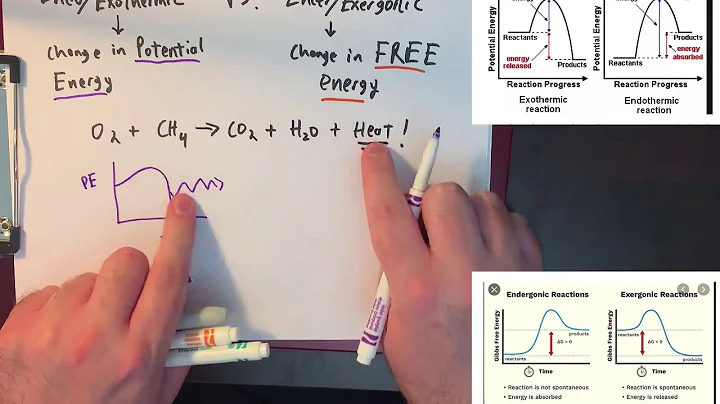 Endo/Exothermic vs. Ender/Exergonic
change in Potential
Energy
change in FREE
energy
O2 + CH4 → CO2 + H2O + Heat!
PE
Potential Energy
Reactants
energy
released
Products
Reaction Progress
Exothermic
reaction
Potential Energy
Products
energy
absorbed
Reactants
Reaction Progress
Endothermic
reaction
Endergonic Reactions
Gibbs Free Energy
products
ΔG > 0
reactants
Time
• Reaction is not spontaneous
• Energy is absorbed
Exergonic Reactions
Gibbs Free Energy
reactants
ΔG < 0
products
Time
• Reaction is spontaneous
• Energy is released